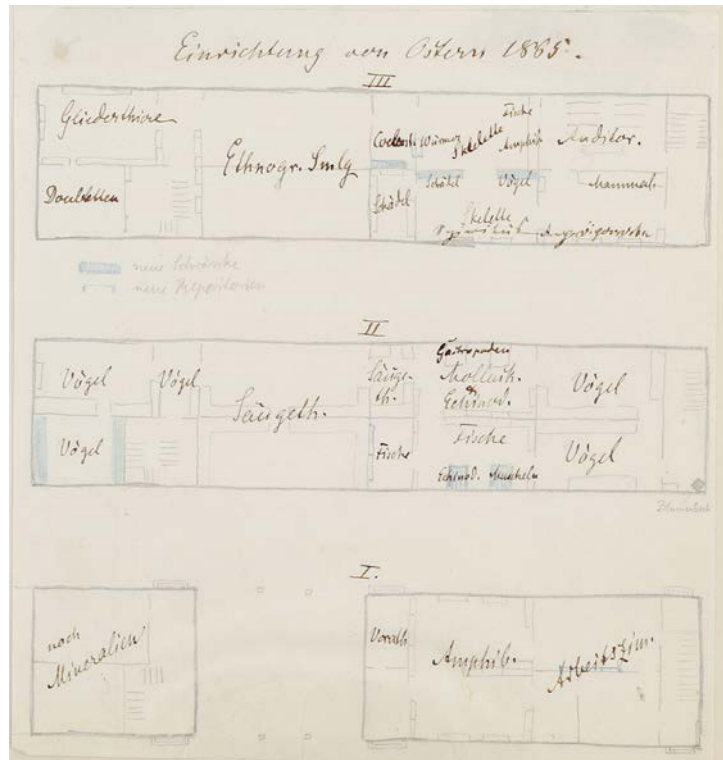 Einrichtung von Ostern 1865.
III
Gliederthiere
Doubletten
Ethnogr. Smlg
Coelent.
Würmer
Skelette
Fische
Amphib.
Auditor.
Schädel
Schädel
Vögel
Mammal.
Skelette
neue Schränke
neue Repositorien
II
Vögel
Vögel
Vögel
Säugeth.
Säuge-
th.
Fische
Gastropoden
Mollusk.
Echinod.
Fische
Echinod. Muscheln
Vögel
Vögel
Blumenbach
I.
noch
Mineralien
Vorath
Amphib.
Arbeitszim.